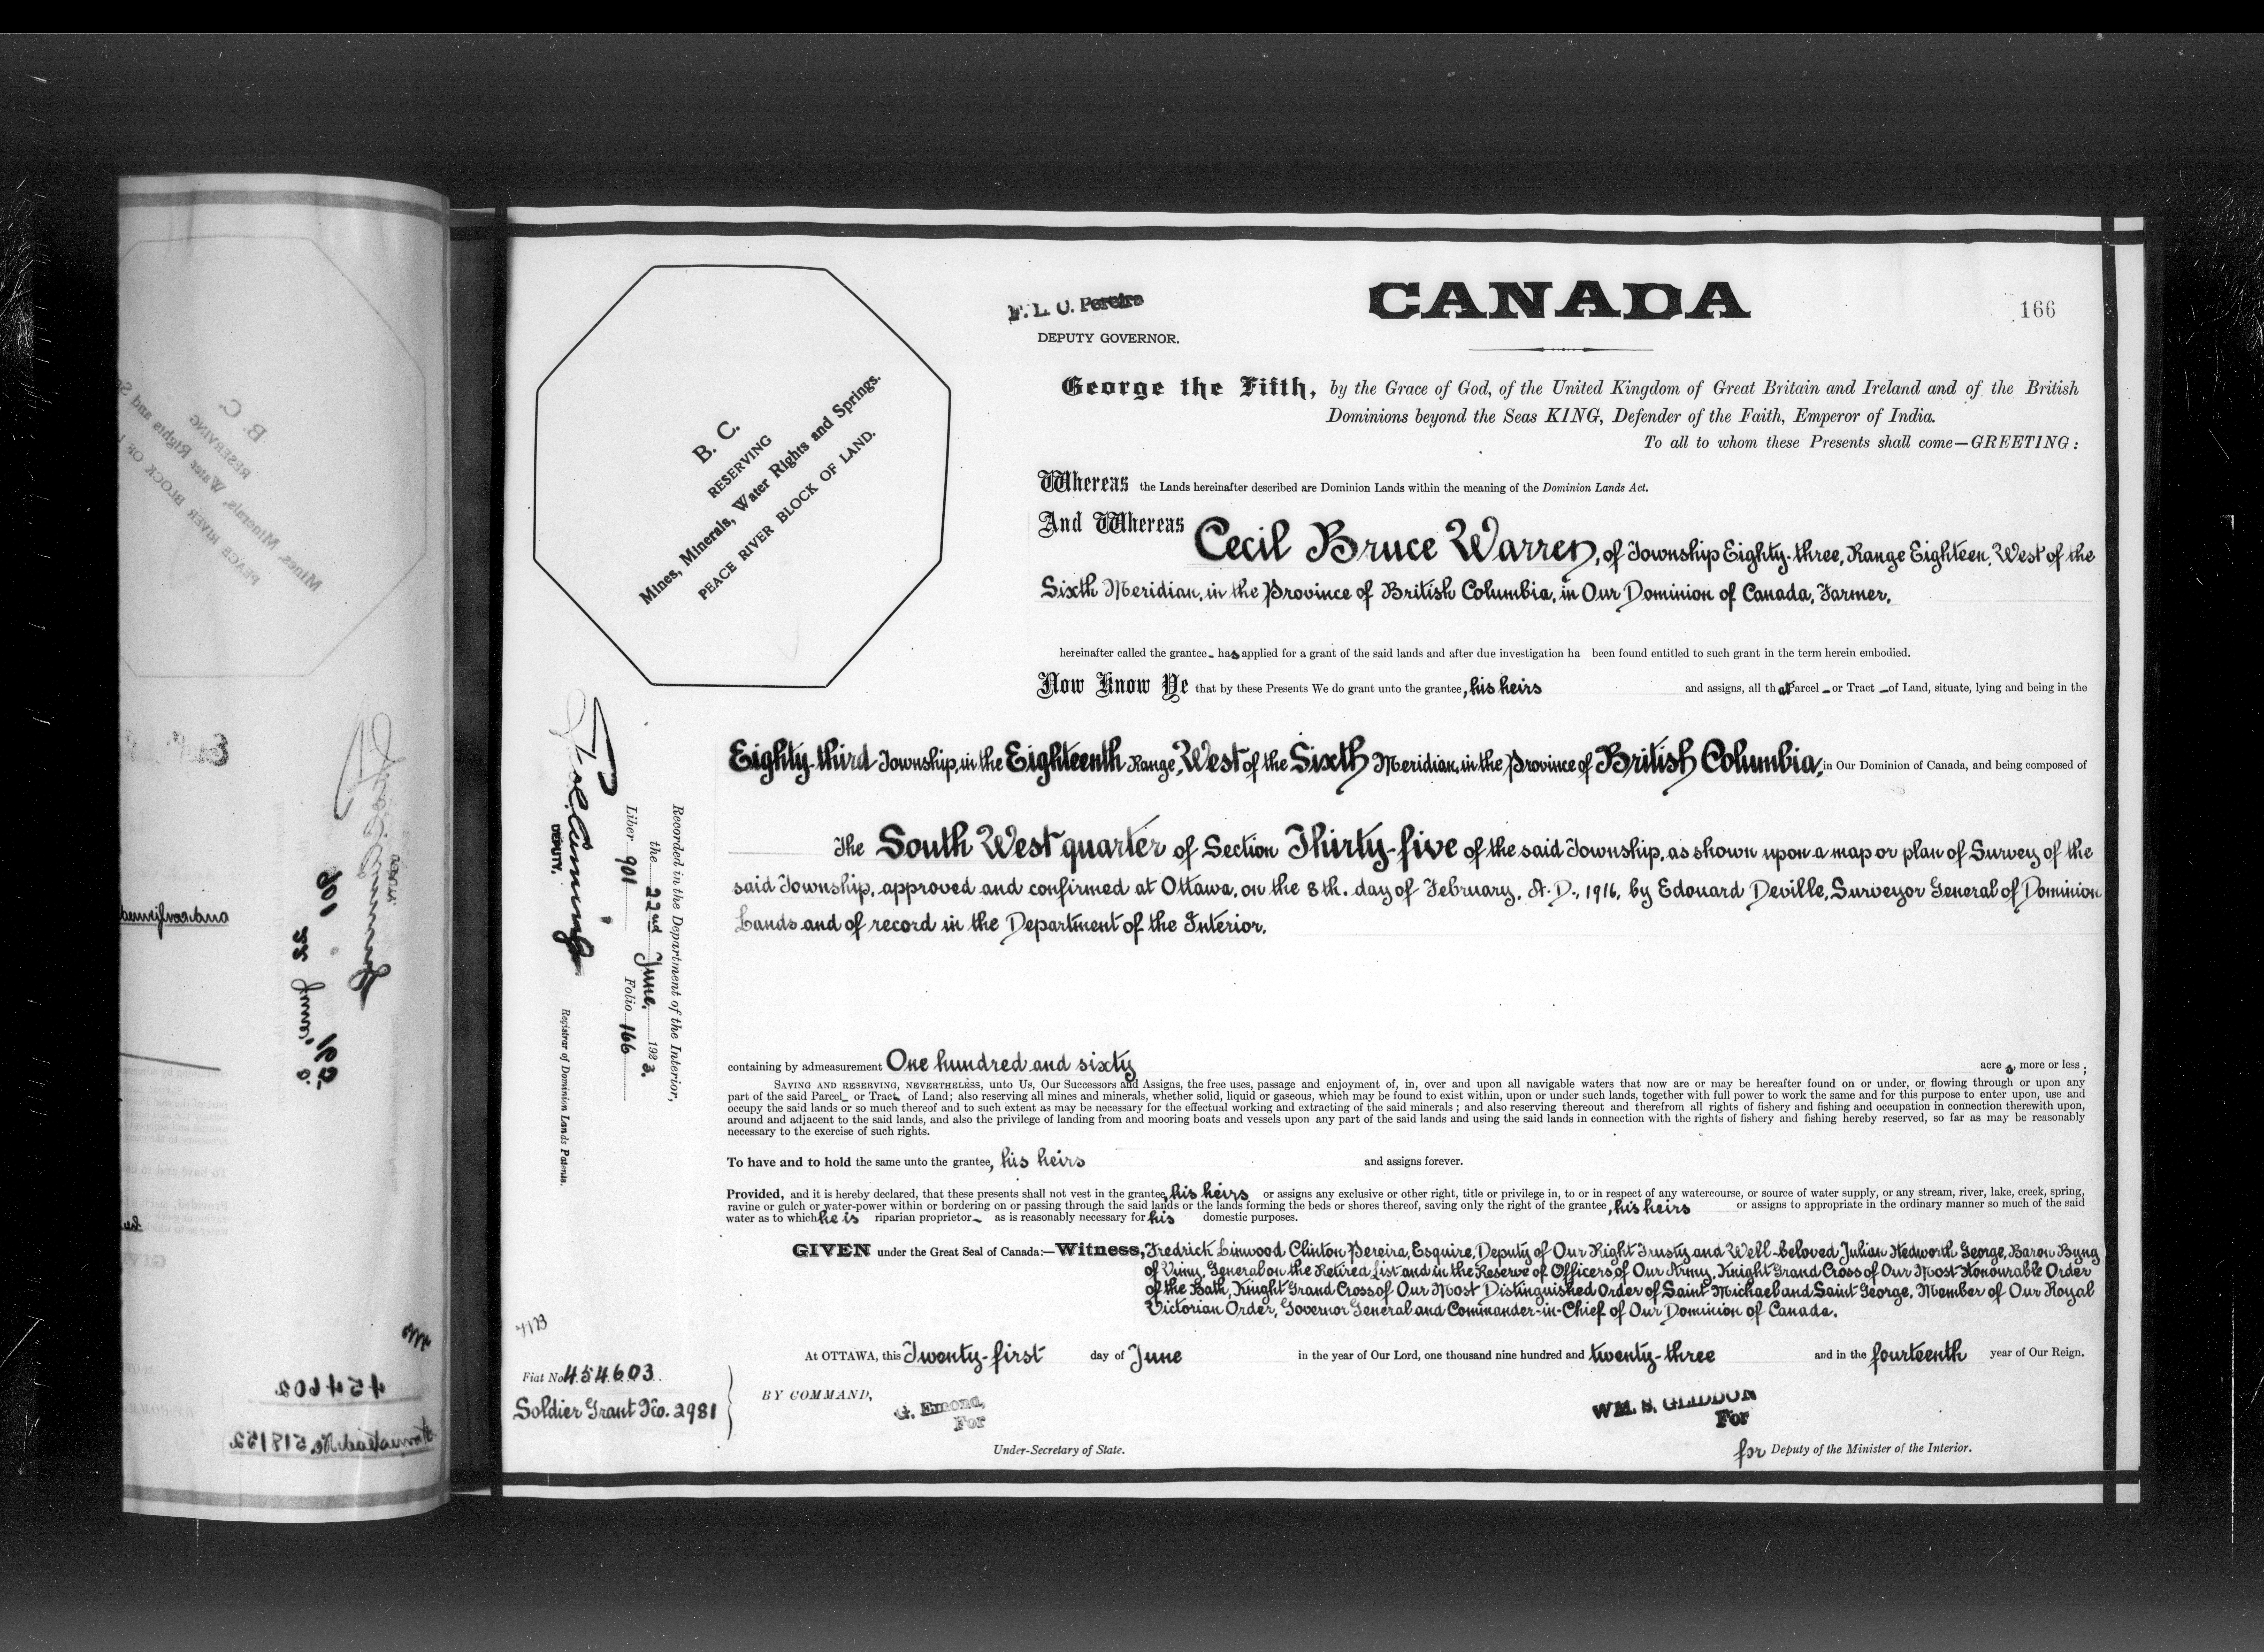 CANADA
166
F. L. C. Pereira
DEPUTY GOVERNOR.
B. C.
RESERVING
Mines, Minerals, Water Rights and Springs.
PEACE RIVER BLOCK OF LAND.
George the Fifth, by the Grace of God, of the United Kingdom of Great Britain and Ireland and of the British
Dominions beyond the Seas KING, Defender of the Faith, Emperor of India.
To all to whom these Presents shall come—GREETING:
Whereas the Lands hereinafter described are Dominion Lands within the meaning of the Dominion Lands Act.
And Whereas Cecil Bruce Warren, of Township Eighty-three, Range Eighteen, West of the
Sixth Meridian, in the Province of British Columbia, in Our Dominion of Canada, Farmer,
hereinafter called the grantee has applied for a grant of the said lands and after due investigation ha been found entitled to such grant in the term herein embodied.
Now Know Ye that by these Presents We do grant unto the grantee, his heirs and assigns, all that Parcel or Tract of Land, situate, lying and being in the
Eighty-third Township, in the Eighteenth Range, West of the Sixth Meridian, in the Province of British Columbia, in Our Dominion of Canada, and being composed of
The South West quarter of Section Thirty-five of the said Township, as shown upon a map or plan of Survey of the
said Township, approved and confirmed at Ottawa, on the 8th. day of February, A.D., 1916, by Edouard Deville, Surveyor General of Dominion
Lands and of record in the Department of the Interior.
containing by admeasurement One hundred and sixty acres, more or less;
SAVING AND RESERVING, NEVERTHELESS, unto Us, Our Successors and Assigns, the free uses, passage and enjoyment of, in, over and upon all navigable waters that now are or may be hereafter found on or under, or flowing through or upon any
part of the said Parcel or Tract of Land; also reserving all mines and minerals, whether solid, liquid or gaseous, which may be found to exist within, upon or under such lands, together with full power to work the same and for this purpose to enter upon, use and
occupy the said lands or so much thereof and to such extent as may be necessary for the effectual working and extracting of the said minerals; and also reserving thereout and therefrom all rights of fishery and fishing and occupation in connection therewith upon,
around and adjacent to the said lands, and also the privilege of landing from and mooring boats and vessels upon any part of the said lands and using the said lands in connection with the rights of fishery and fishing hereby reserved, so far as may be reasonably
necessary to the exercise of such rights.
To have and to hold the same unto the grantee, his heirs and assigns forever.
Provided, and it is hereby declared, that these presents shall not vest in the grantee, his heirs or assigns any exclusive or other right, title or privilege in, to or in respect of any watercourse, or source of water supply, or any stream, river, lake, creek, spring,
ravine or gulch or water-power within or bordering on or passing through the said lands or the lands forming the beds or shores thereof, saving only the right of the grantee, his heirs or assigns to appropriate in the ordinary manner so much of the said
water as to which he is riparian proprietor as is reasonably necessary for his domestic purposes.
GIVEN under the Great Seal of Canada:—Witness, Fredrick Linwood Clinton Pereira, Esquire, Deputy of Our Right Trusty and Well-beloved Julian Hedworth George, Baron Byng
of Vimy, General on the Retired List and in the Reserve of Officers of Our Army, Knight Grand Cross of Our Most Honourable Order
of the Bath, Knight Grand Cross of Our Most Distinguished Order of Saint Michael and Saint George, Member of Our Royal
Victorian Order, Governor General and Commander-in-Chief of Our Dominion of Canada.
At OTTAWA, this Twenty-first day of June in the year of Our Lord, one thousand nine hundred and twenty-three and in the fourteenth year of Our Reign.
BY COMMAND,
G. Emond,
For
Under-Secretary of State.
WM. S. GLIDDON
For
for Deputy of the Minister of the Interior.
Recorded in the Department of the Interior,
the 22nd June, 1923.
Liber 901 Folio 166
DEPUTY.
Registrar of Dominion Lands Patents.
Fiat No 454603
Soldier Grant No. 2981